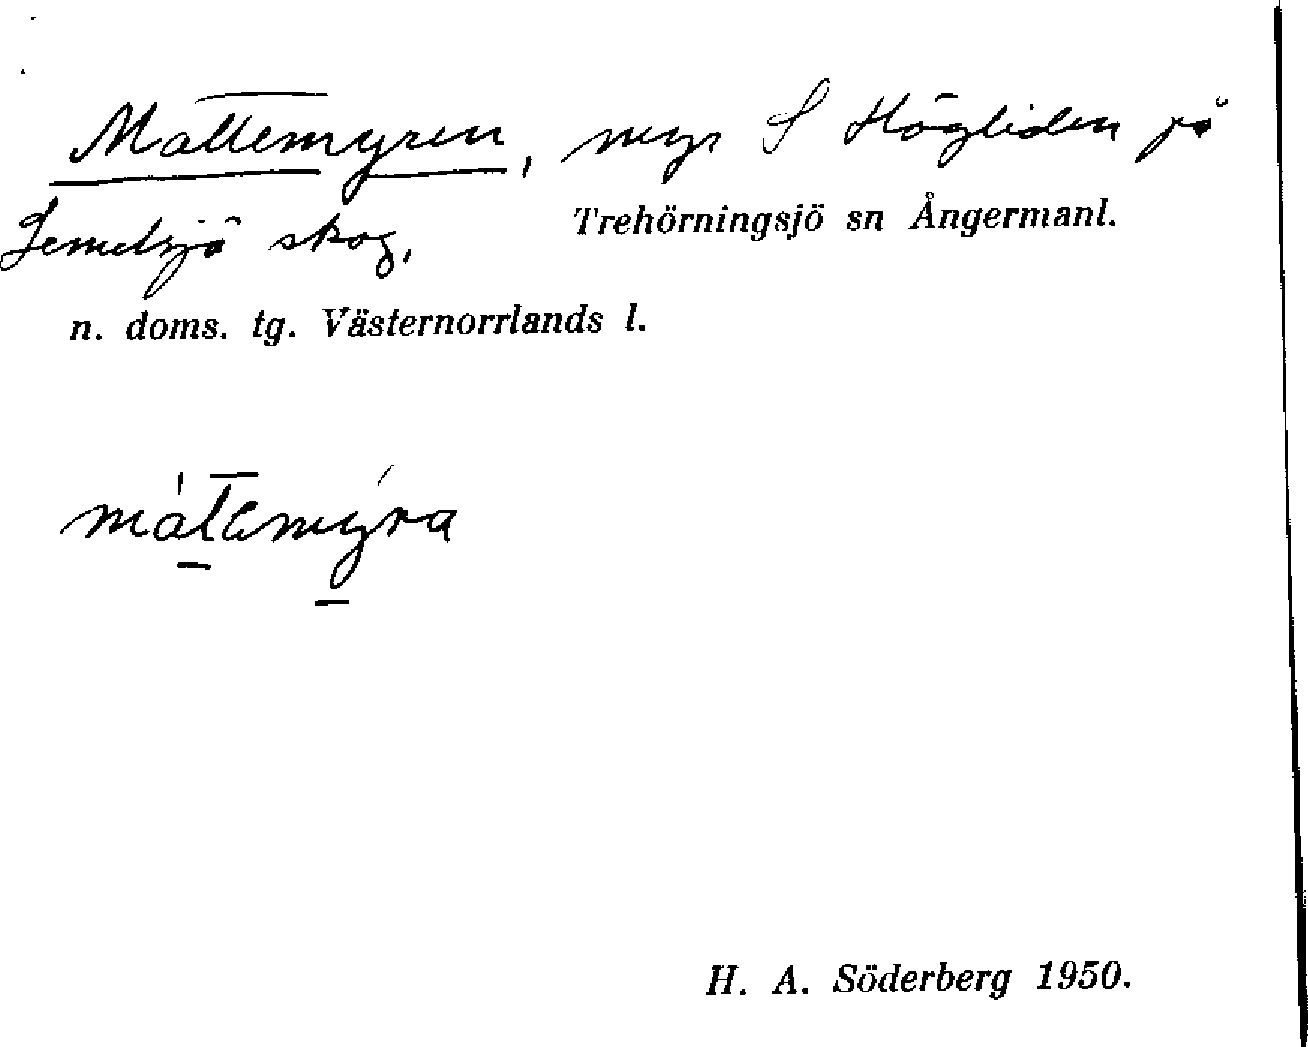 Mattemyren, myr S Högliden på
Lemelsjö skog, Trehörningsjö sn Ångermanl.
n. doms. tg. Västernorrlands l.
mátemýra
H. A. Söderberg 1950.